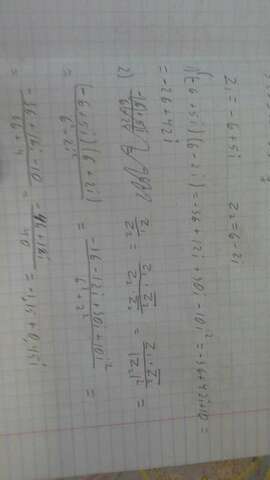 z₁ = -6+5i   z₂ = 6-2i
1) (-6+5i)(6-2i) = -36+12i+30i-10i² = -36+42i+10 =
= -26+42i
2) z₁/z₂ = z₁·z̄₂/z₂·z̄₂ = z₁·z̄₂/|z₂|² =
= (-6+5i)(6+2i)/6²+2i² = -36-12i+30i+10i²/6²+2² =
= -36+18i-10/36+4 = -46+18i/40 = -1,15+0,45i